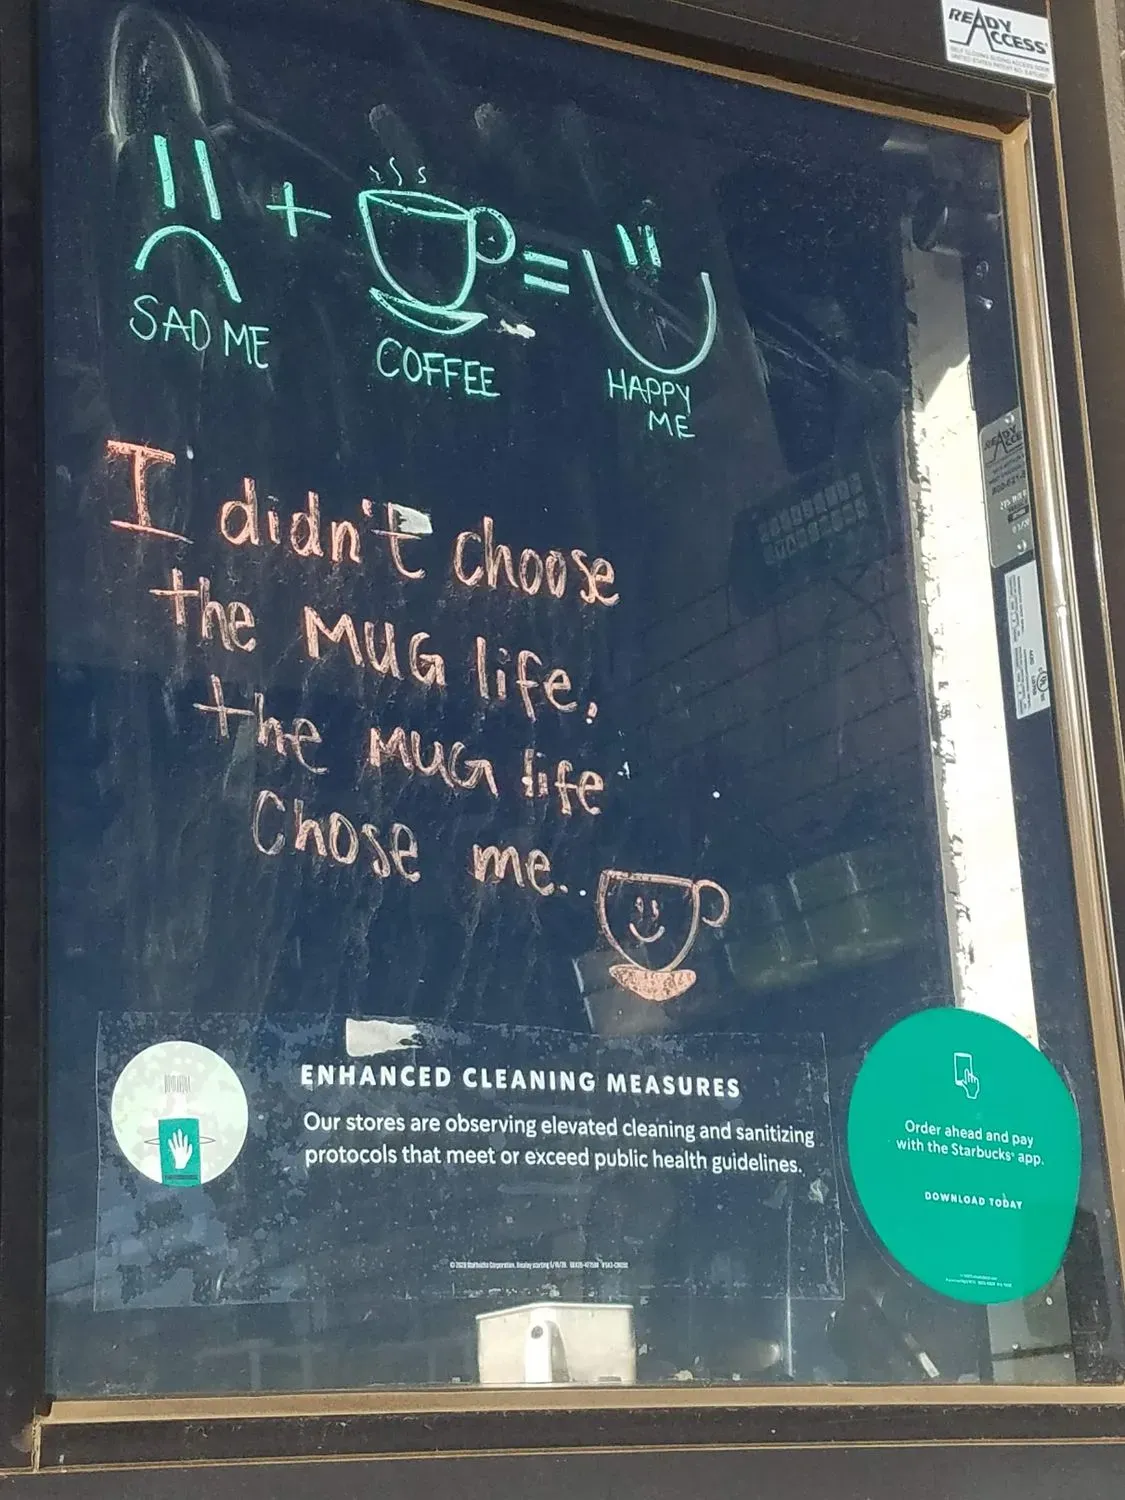 READY
ACCESS
+
=
SAD ME
COFFEE
HAPPY
ME
I didn't choose
the MUG life,
the MUG life
Chose me..
ENHANCED CLEANING MEASURES
Our stores are observing elevated cleaning and sanitizing
protocols that meet or exceed public health guidelines.
Order ahead and pay
with the Starbucks® app.
DOWNLOAD TODAY